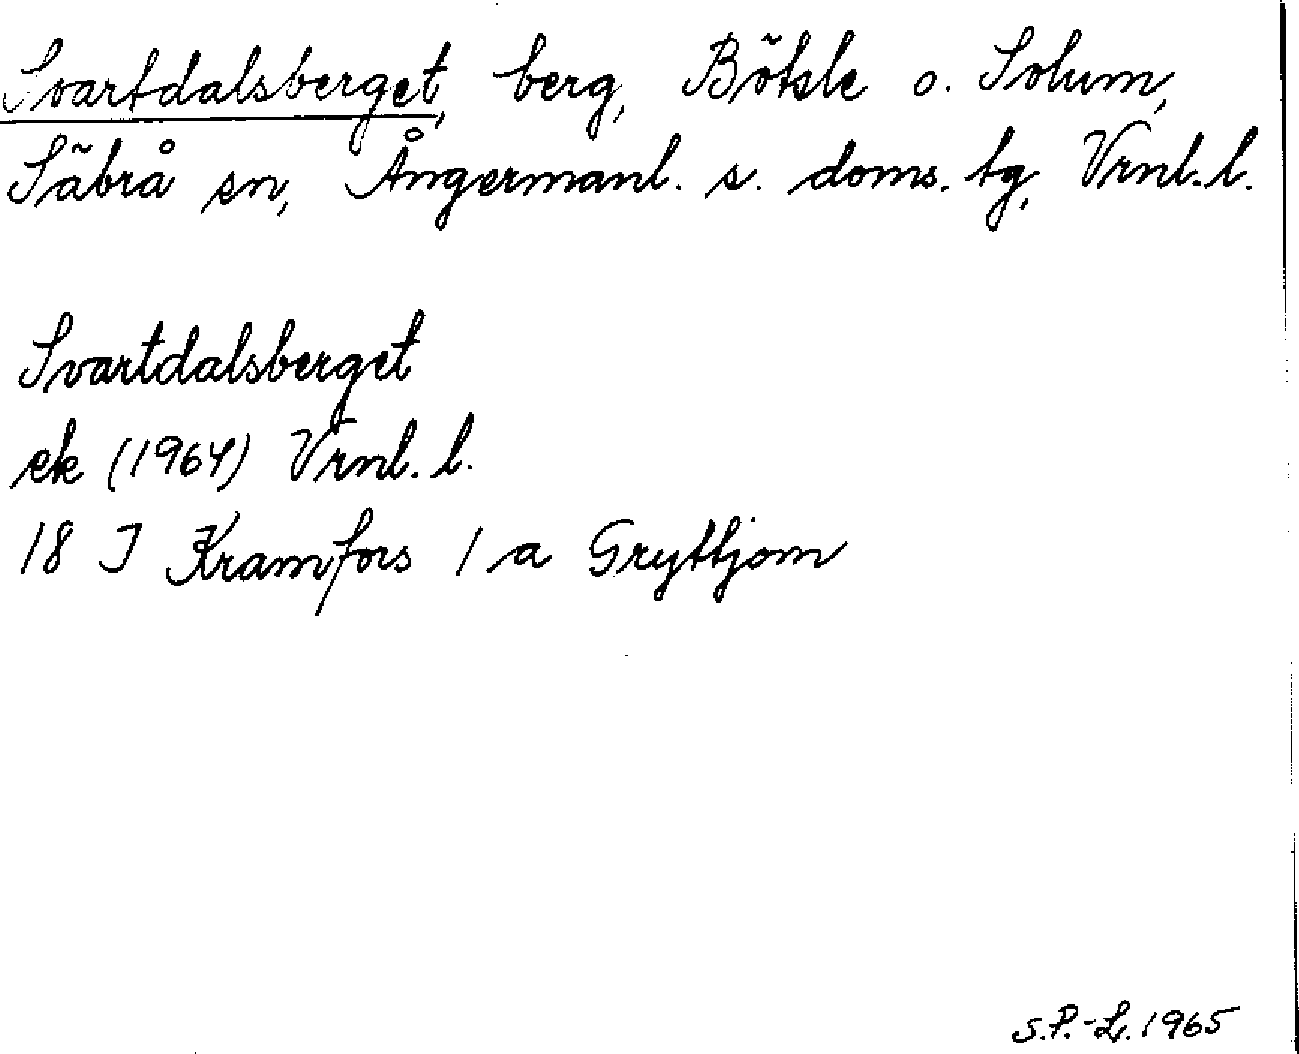 Svartdalsberget, berg, Bötsle o. Solum,
Säbrå sn, Ångermanl. s. doms. tg, Vrnl. l.
Svartdalsberget
ek (1964) Vrnl. l.
18 I Kramfors 1 a Gryttjom
S.P.-L. 1965